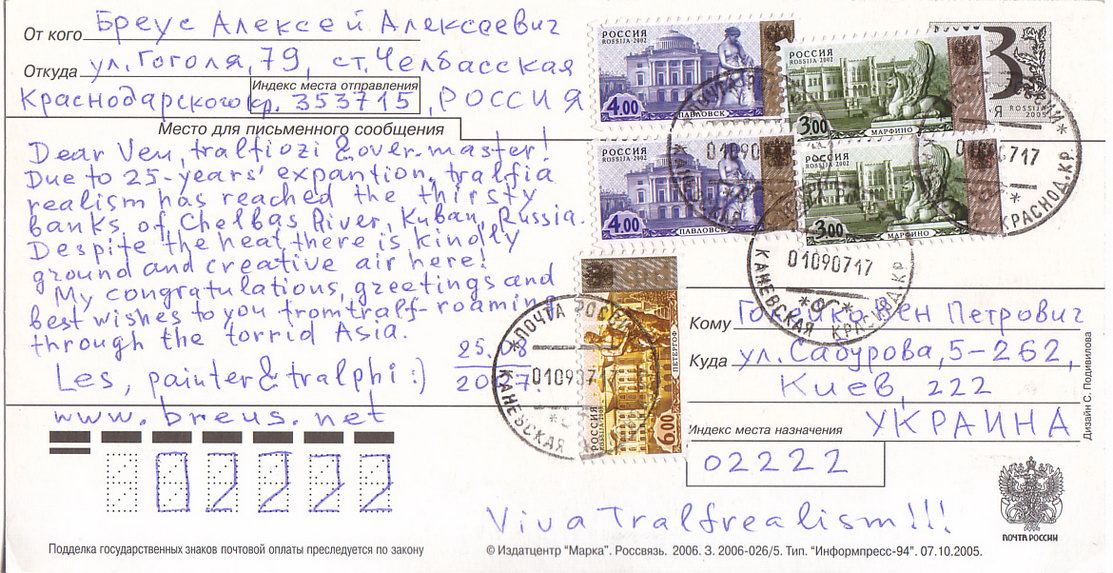 От кого Бреус Алексей Алексеевич
Откуда ул. Гоголя, 79, ст. Челбасская
Индекс места отправления
Краснодарского кр. 353715, РОССИЯ
Место для письменного сообщения
Dear Ven, tralfiozi & over-master!
Due to 25-years' expantion, tralfia
realism has reached the thirsty
banks of Chelbas River, Kuban, Russia.
Despite the heat, there is kindly
ground and creative air here!
My congratulations, greetings and
best wishes to you from tralf-roaming
through the torrid Asia.
Les, painter & tralphi :)
25.08
2007
www.breus.net
РОССИЯ
ROSSIJA 2002
4.00
ПАВЛОВСК
РОССИЯ
ROSSIJA 2002
3.00
МАРФИНО
3
ROSSIJA
2005
РОССИЯ
ROSSIJA 2002
4.00
ПАВЛОВСК
РОССИЯ
ROSSIJA 2002
3.00
МАРФИНО
РОССИЯ
6.00
ПЕТЕРГОФ
ПОЧТА РОССИИ
КАНЕВСКАЯ
01090717
КАНЕВСКАЯ КРАСНОД.КР.
01090717
КРАСНОД.КР.
Кому Петрович
Куда ул. Сабурова, 5-262,
Киев, 222
Индекс места назначения УКРАИНА
02222
02222
Дизайн С. Подивилова
Viva Tralfrealism!!!
ПОЧТА РОССИИ
Подделка государственных знаков почтовой оплаты преследуется по закону
© Издатцентр "Марка". Россвязь. 2006. З. 2006-026/5. Тип. "Информпресс-94". 07.10.2005.